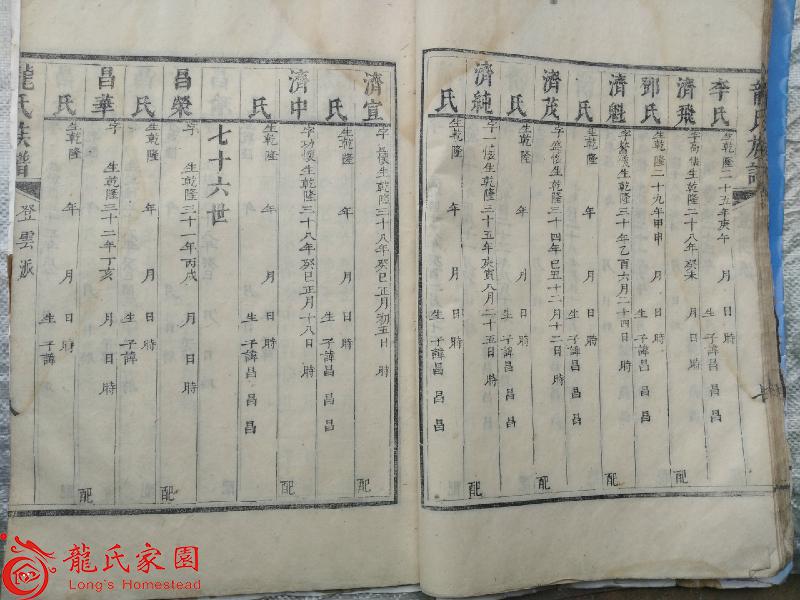 龍氏族譜
李氏 生乾隆二十五年庚午 月 日 時 生 子諱昌 昌 昌
濟飛 字 生乾隆二十八年癸未 月 日 時 配
鄧氏 生乾隆二十九年甲申 月 日 時 生 子諱昌 昌 昌
濟魁 字 生乾隆三十年乙酉六月二十四日 時 配
氏 生乾隆 年 月 日 時 生 子諱昌 昌 昌
濟茂 字 懷生乾隆三十四年己丑十二月十二日 時 配
氏 生乾隆 年 月 日 時 生 子諱昌 昌 昌
濟純 字 懷生乾隆三十五年庚寅八月二十五日 時 配
氏 生乾隆 年 月 日 時 生 子諱昌 昌 昌
濟宜 字 懷生乾隆三十八年癸巳正月初五日 時 配
氏 生乾隆 年 月 日 時 生 子諱昌 昌 昌
濟中 字功懷生乾隆三十八年癸巳正月十八日 時 配
氏 生乾隆 年 月 日 時 生 子諱昌 昌 昌
七十六世
昌榮 字 生乾隆三十一年丙戌 月 日 時 配
氏 生乾隆 年 月 日 時 生 子諱
昌華 字 生乾隆三十二年丁亥 月 日 時 配
氏 生乾隆 年 月 日 時 生 子諱
龍氏族譜 登雲派
龍氏家園
Long's Homestead